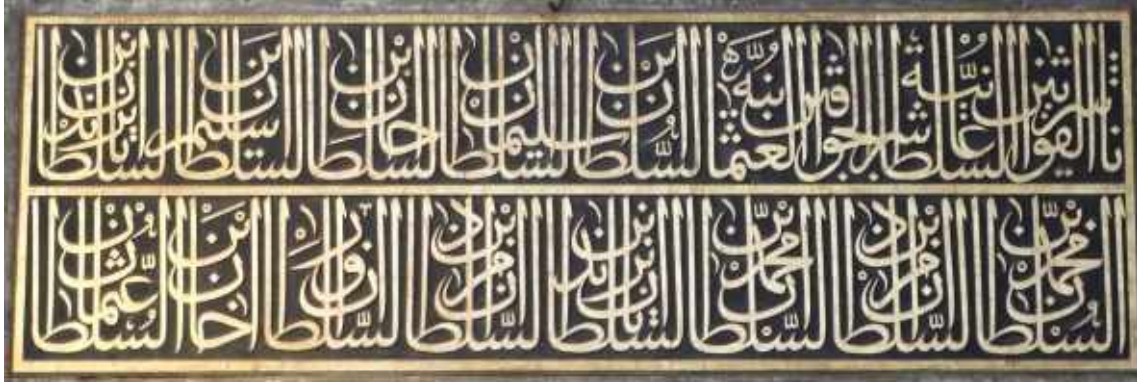 ناشر القوانين السلطانية عاشر الخواقين العثمانية السلطان بن السلطان بن السلطان سليمان خان بن السلطان سليم بن السلطان بايزيد بن
السلطان محمد بن السلطان مراد بن السلطان محمد بن السلطان بايزيد بن السلطان مراد بن السلطان اورخان بن السلطان عثمان